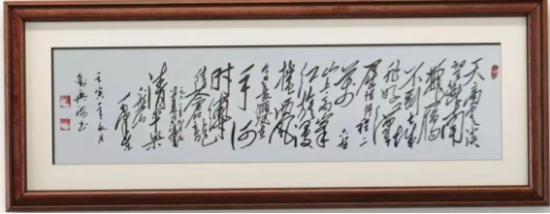 天高云淡
望断南
飞雁
不到长城
非好汉
屈指行程二
万 六盘
山上高峰
红旗漫
卷西风
今日长缨在
手 何
时缚住
苍龙
清平乐
毛泽东
壬寅年